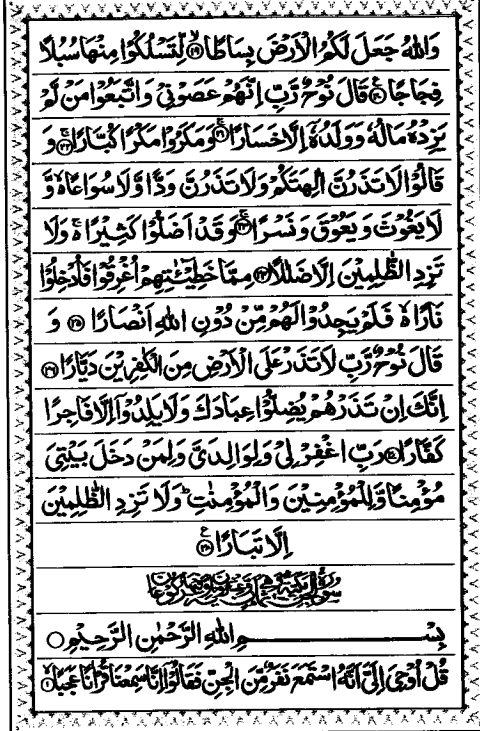 وَاللّٰهُ جَعَلَ لَكُمُ الْاَرْضَ بِسَاطًا ۙ﴿۱۹﴾ لِّتَسْلُكُوْا مِنْهَا سُبُلًا
فِجَاجًا ﴿۲۰﴾ قَالَ نُوْحٌ رَّبِّ اِنَّهُمْ عَصَوْنِیْ وَاتَّبَعُوْا مَنْ لَّمْ
یَزِدْهُ مَالُهٗ وَوَلَدُهٗۤ اِلَّا خَسَارًا ﴿۲۱﴾ وَمَكَرُوْا مَكْرًا كُبَّارًا ﴿۲۲﴾ وَ
قَالُوْا لَا تَذَرُنَّ اٰلِهَتَكُمْ وَلَا تَذَرُنَّ وَدًّا وَّلَا سُوَاعًا ۙ وَّ
لَا یَغُوْثَ وَیَعُوْقَ وَنَسْرًا ﴿۲۳﴾ وَقَدْ اَضَلُّوْا كَثِیْرًا ۚ وَلَا
تَزِدِ الظّٰلِمِیْنَ اِلَّا ضَلٰلًا ﴿۲۴﴾ مِمَّا خَطِیْٓـٰٔتِهِمْ اُغْرِقُوْا فَاُدْخِلُوْا
نَارًا ۙ فَلَمْ یَجِدُوْا لَهُمْ مِّنْ دُوْنِ اللّٰهِ اَنْصَارًا ﴿۲۵﴾ وَ
قَالَ نُوْحٌ رَّبِّ لَا تَذَرْ عَلَی الْاَرْضِ مِنَ الْكٰفِرِیْنَ دَیَّارًا ﴿۲۶﴾
اِنَّكَ اِنْ تَذَرْهُمْ یُضِلُّوْا عِبَادَكَ وَلَا یَلِدُوْۤا اِلَّا فَاجِرًا
كَفَّارًا ﴿۲۷﴾ رَبِّ اغْفِرْ لِیْ وَلِوَالِدَیَّ وَلِمَنْ دَخَلَ بَیْتِیَ
مُؤْمِنًا وَّلِلْمُؤْمِنِیْنَ وَالْمُؤْمِنٰتِ ؕ وَلَا تَزِدِ الظّٰلِمِیْنَ
اِلَّا تَبَارًا ﴿۲۸﴾
بِسْمِ اللّٰهِ الرَّحْمٰنِ الرَّحِیْمِ ○
قُلْ اُوْحِیَ اِلَیَّ اَنَّهُ اسْتَمَعَ نَفَرٌ مِّنَ الْجِنِّ فَقَالُوْۤا اِنَّا سَمِعْنَا قُرْاٰنًا عَجَبًا ۙ﴿۱﴾